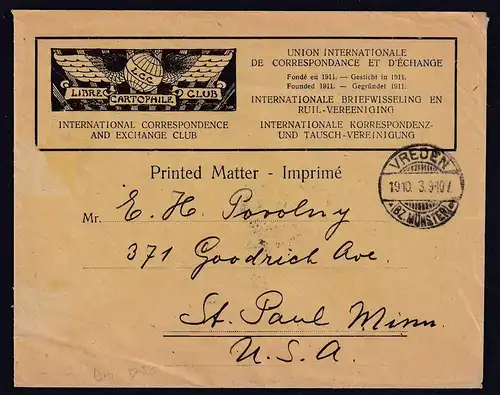 L.C.C.
LIBRE CARTOPHILE CLUB
INTERNATIONAL CORRESPONDENCE
AND EXCHANGE CLUB
UNION INTERNATIONALE
DE CORRESPONDANCE ET D'ÉCHANGE
Fondé en 1911. — Gesticht in 1911.
Founded 1911. — Gegründet 1911.
INTERNATIONALE BRIEFWISSELING EN
RUIL-VEREENIGING
INTERNATIONALE KORRESPONDENZ-
UND TAUSCH-VEREINIGUNG
Printed Matter - Imprimé
VREDEN
(BZ. MÜNSTER)
Mr. E. H. Povolny
371 Goodrich Ave.
St. Paul Minn.
U.S.A.